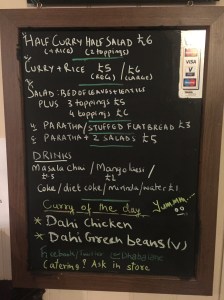 HALF CURRY HALF SALAD £6
(+ RICE) (2 TOPPINGS)
CURRY + RICE £5 / £6
(REG) (LARGE)
SALAD: BED OF LEAVES + LENTILS
PLUS 3 TOPPINGS £5
4 TOPPINGS £6
PARATHA/STUFFED FLATBREAD £3
PARATHA + 2 SALADS £5
DRINKS
Masala Chai / Mango lassi
£1.5 £2
Coke/diet coke/mirinda/water £1
Curry of the day
Yummm...
* Dahi Chicken
* Dahi Green beans (V)
Facebook/twitter
Catering? Ask in store
VISA